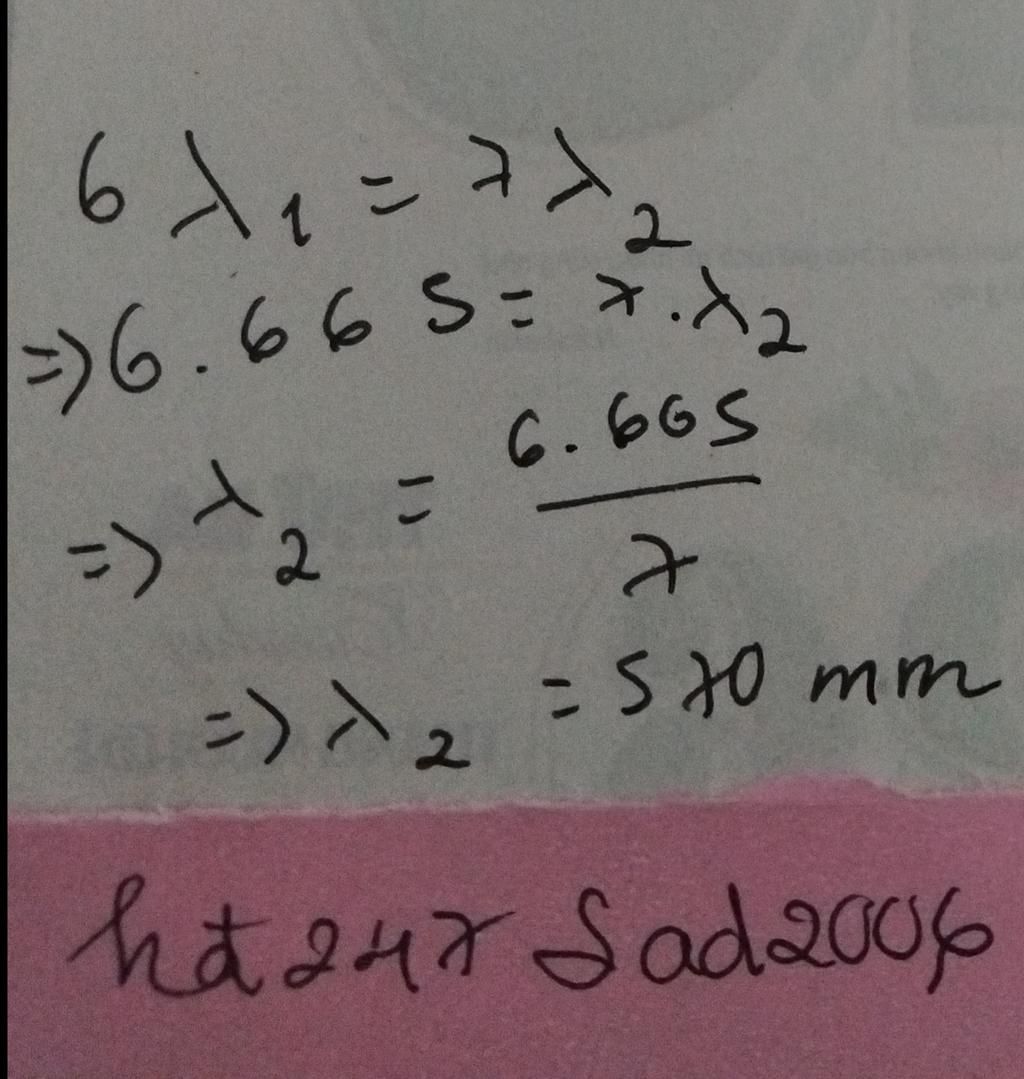 6 λ₁ = 7 λ₂
=> 6 . 665 = 7 . λ₂
=> λ₂ = 6 . 665 / 7
=> λ₂ = 570 mm
hđ247 Sad2006